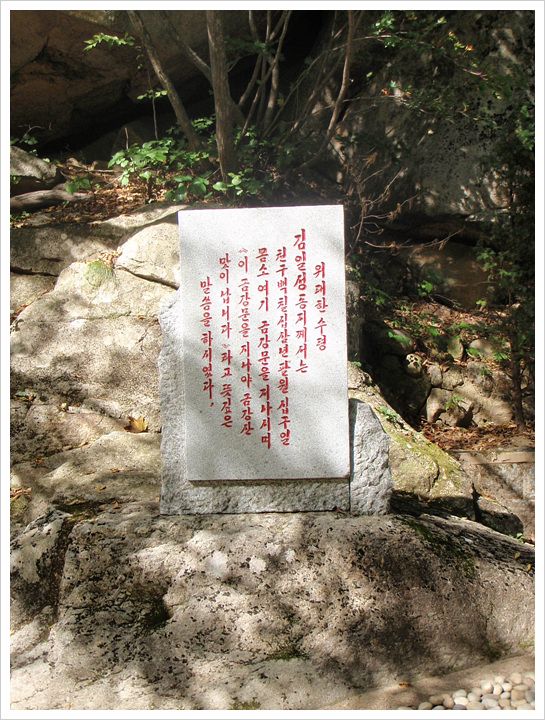 위대한 수령
김일성동지께서는
천구백칠십삼년팔월 십구일
몸소 여기 금강문을 지나시며
《이 금강문을 지나야 금강산
맛이 납니다》라고 뜻깊은
말씀을 하시였다.